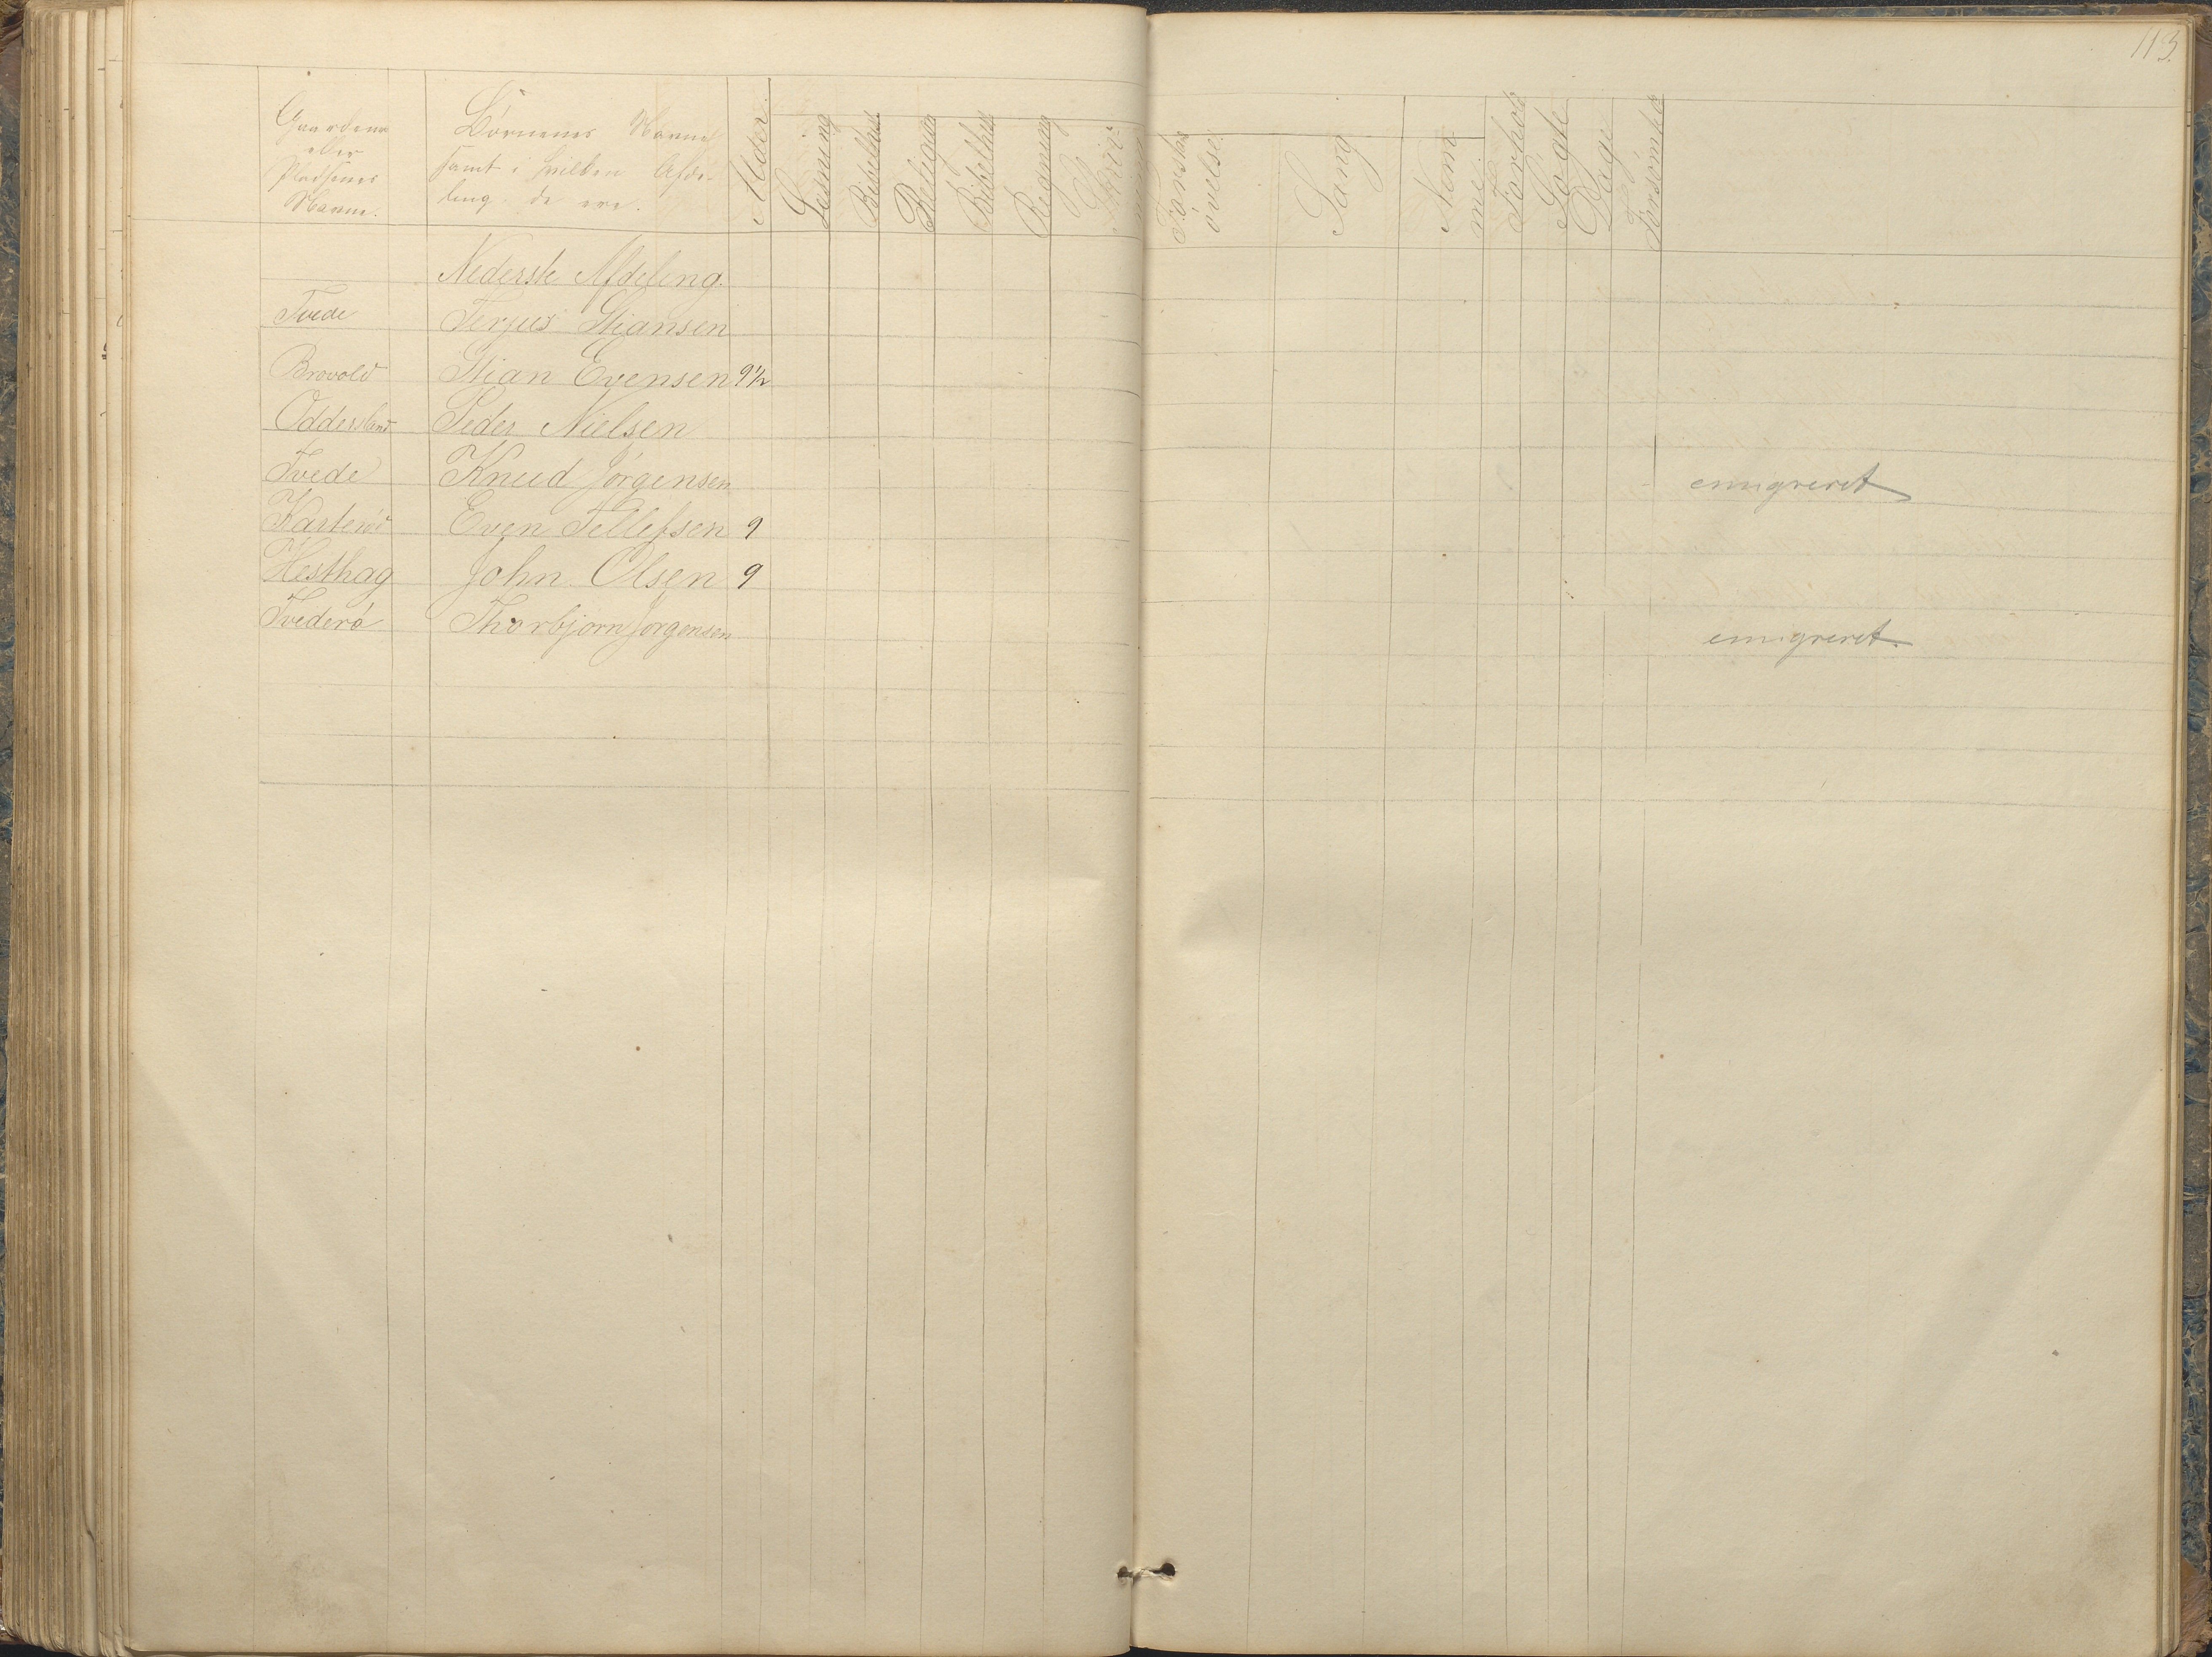 113.
Gaardens
eller
Pladsenes
Navne.
Börnenes Navne
samt i hvilken Afde-
ling de ere.
Alder.
Læsning
Bibelhist
Religion
Bibelhist
Regning
Skriv-
øvelse.
Sang
Forhold
Søgte
Dage
Forsømte
Nederste Afdeling.
Tvede Terjus Stiansen
Brovold Stian Evensen 9½
Oddersland Peder Nielsen
Tvede Knud Jörgensen emigreret
Karterød Even Tellefsen 9
Hesthag John Olsen 9
Tvederö Thorbjörn Jörgensen emigreret.